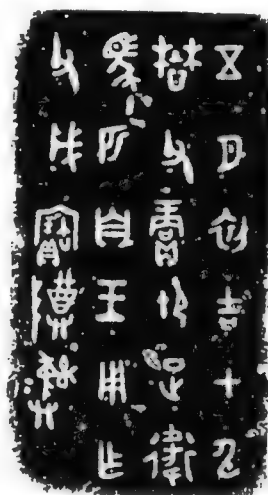 五月初吉甲申
懋父賞御正衛
馬匹自王用作
父戊寶尊彝